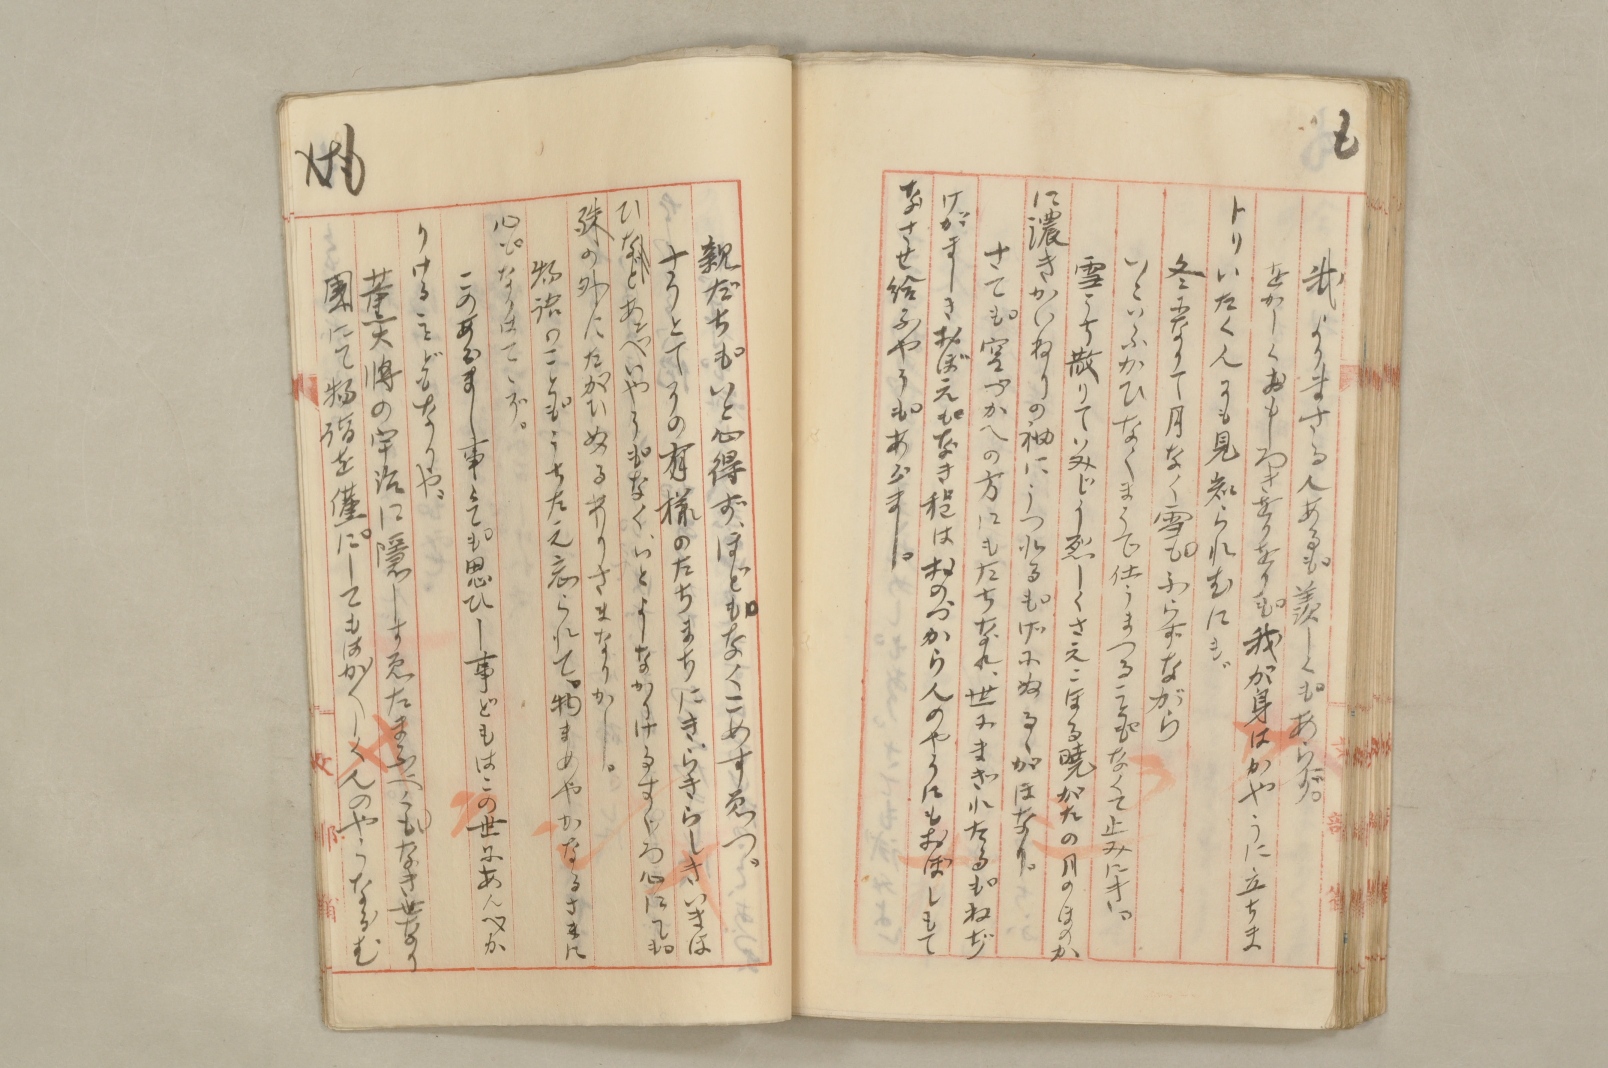 も
我よりまさる人あるも羨しくもあらず。
をかしくおもしろきをりをりも、我が身はかやうに立ちま
トリいたく人にも見知られむにも
冬になりて月なく雪もふらずながら
いといふかひなくまうで仕うまつることもなくて止みにき。
雪うち散りていみじう烈しくさえこほる曉がたの月のほのか
に濃きかいねりの袖にうつれるもげにぬるゝがほなり。
さても宮づかへの方にもたちなれ、世にまぎれたるもねぢ
けがましきおぼえもなき程はおのづから人のやうにもおぼしもて
なさせ給ふやうもあらまし。
けも
親だちもいと心得ず、ほどもなくこめすゑつ。
さりとてその有様のたちまちにきらきらしきいきほ
ひなどあべいやうもなく、いとよしなかりけるすゞろ心にても
殊の外にたがひぬるありさまなりかし。
物語のこともうちたえ忘られて、物まめやかなるさまに
心もなりはてゝぞ。
このあらまし事とても思ひし事どもはこの世にあんべか
りけることどもなりや。
薫大將の宇治に隱しすゑたまふべくもなき世なり
國にて物詣を僅にしてもはかばかしく人のやうならむ
文部省